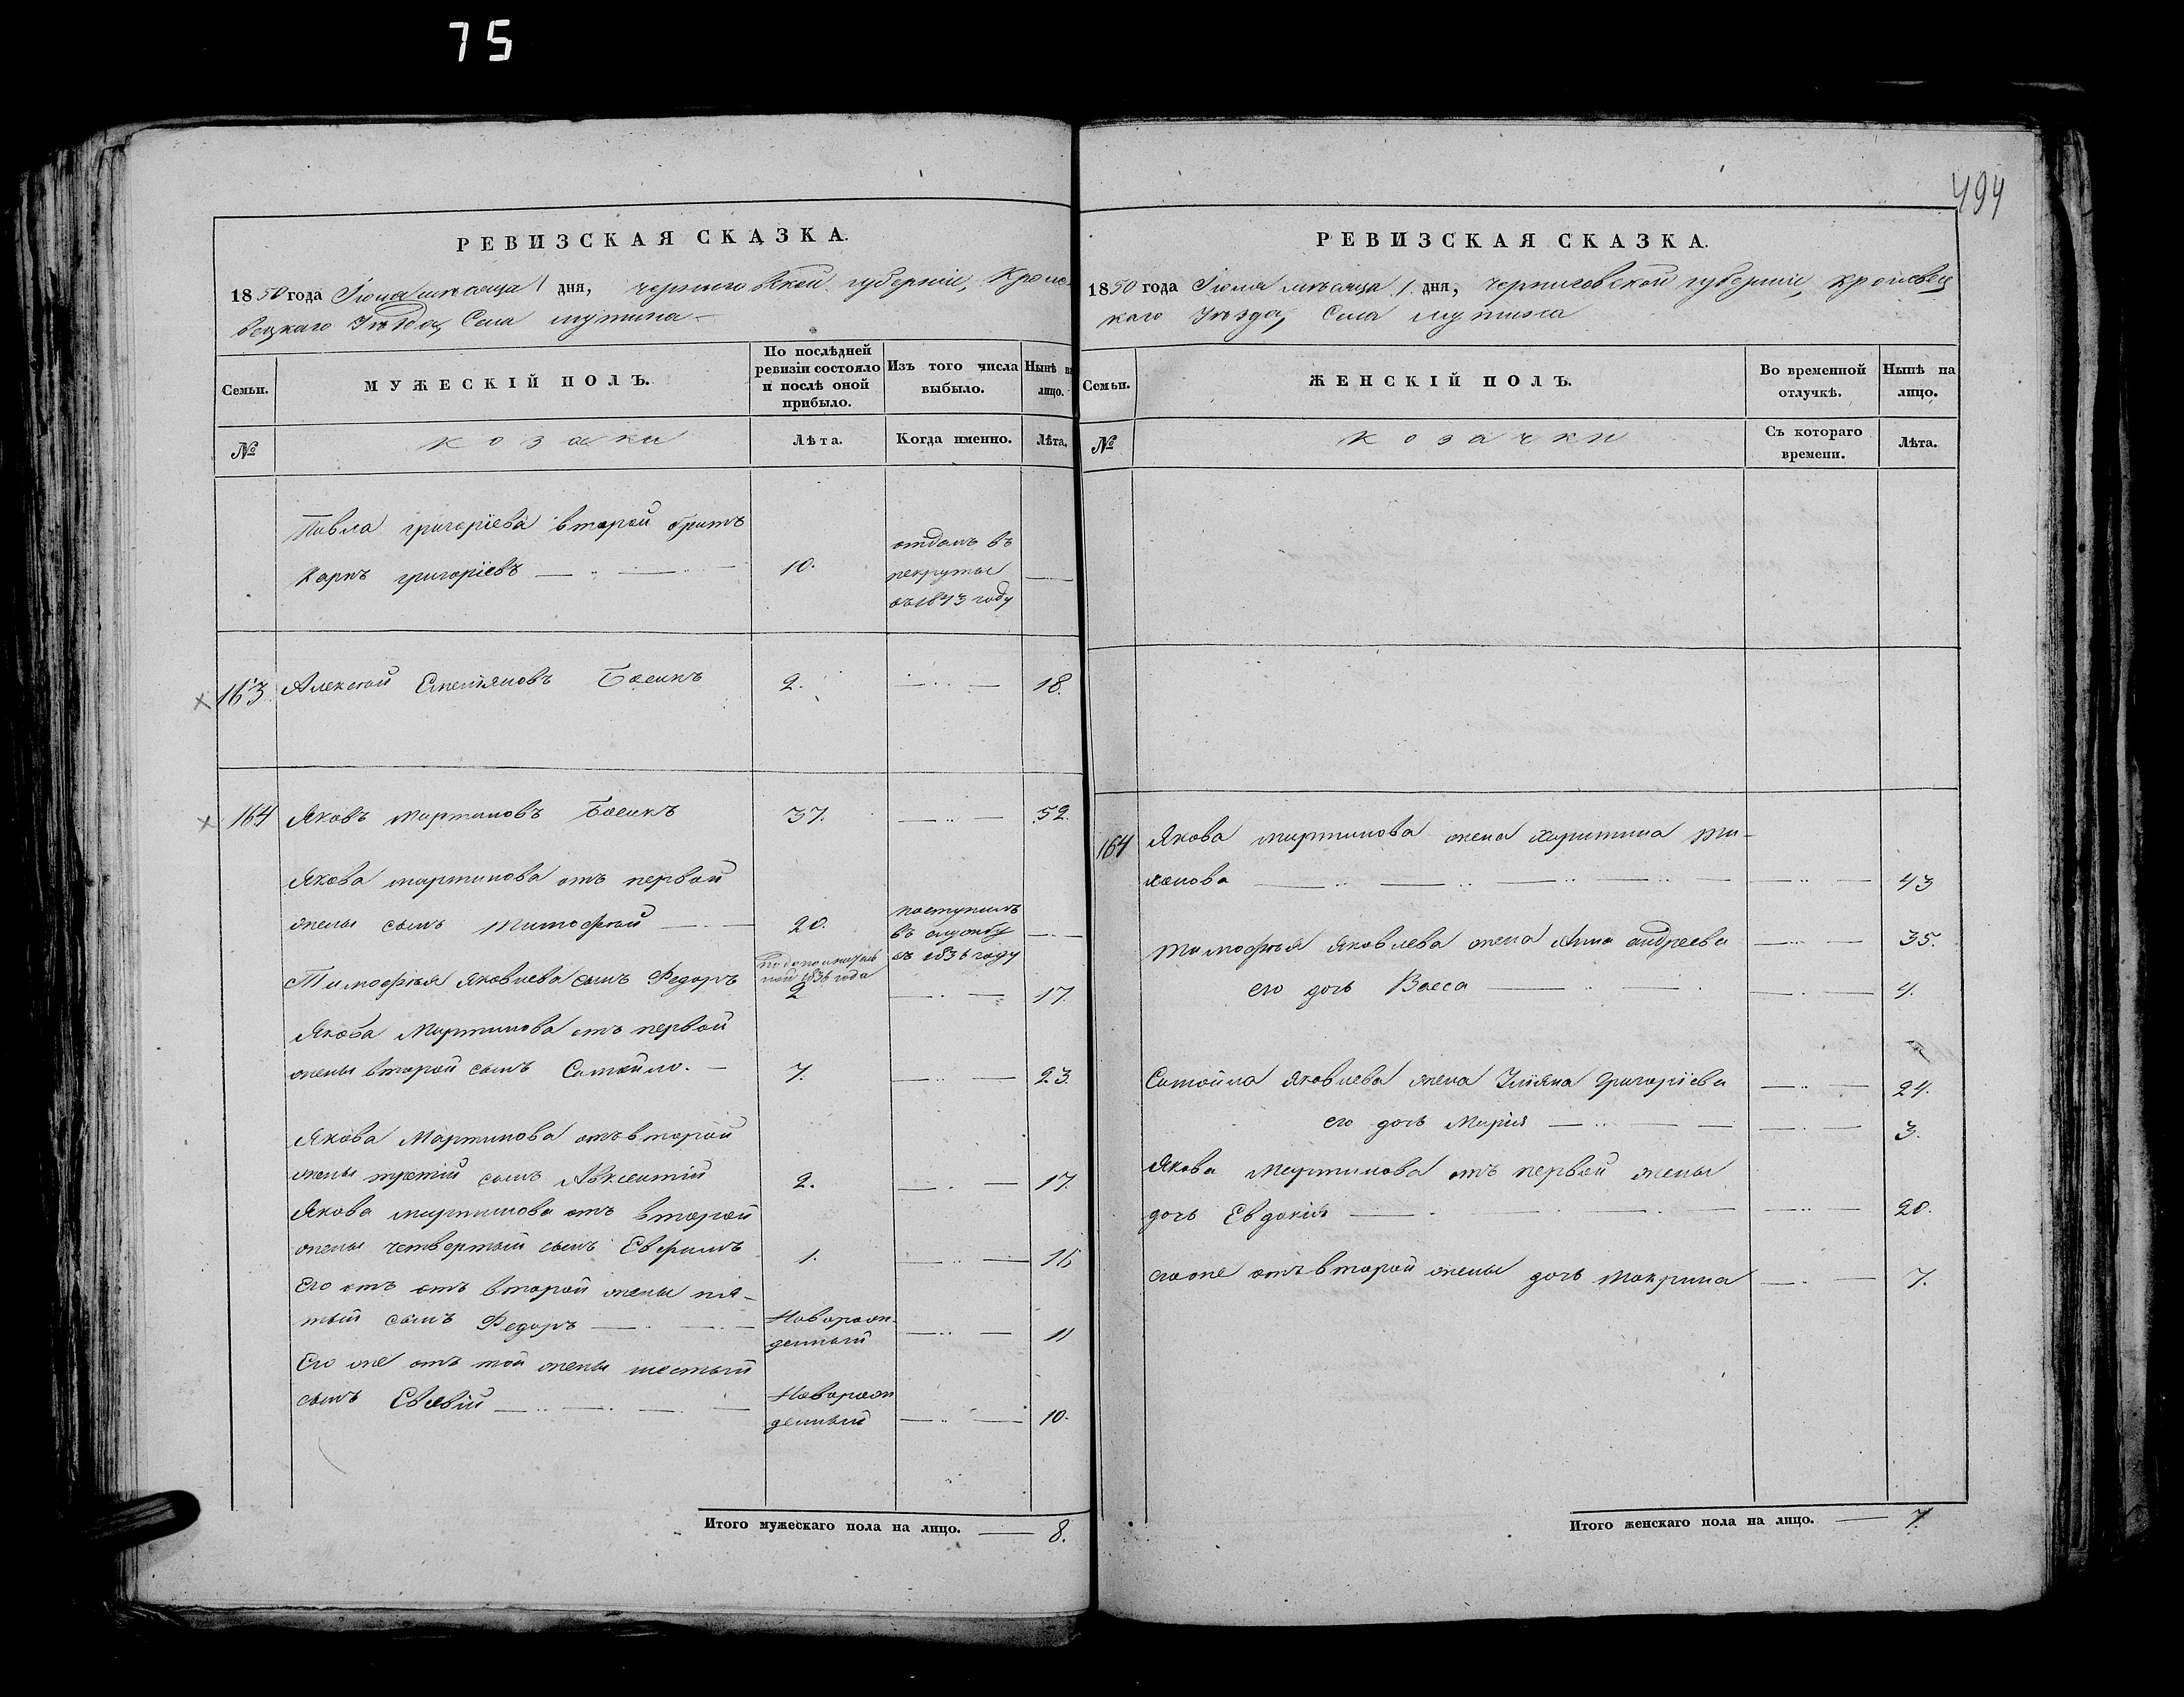 75
494
РЕВИЗСКАЯ СКАЗКА.
1850 года Іюля мѣсяца 1 дня, Черниговской губерніи, Кроле-
вецкаго Уѣзда, Села Мутина
Семьи.
МУЖЕСКІЙ ПОЛЪ.
По послѣдней
ревизіи состояло
и послѣ оной
прибыло.
Изъ того числа
выбыло.
Нынѣ на
лицо.
№
козаки
Лѣта.
Когда именно.
Лѣта.
Павла Григоріева второй братъ
Карпъ Григоріевъ 10.
отданъ въ
рекруты
въ 1843 году
163 Алексѣй Емельяновъ Босикъ 2. 18.
164 Яковъ Мартиновъ Босикъ 37. 52.
Якова Мартинова отъ первой
жены сынъ Тимофѣй 20.
поступилъ
въ службу
въ 1836 году
Тимофѣя Яковлева сынъ Федоръ
по дополнитель
ной 1836 года
2 17.
Якова Мартинова отъ первой
жены второй сынъ Самойло. 7. 23.
Якова Мартинова отъ второй
жены третій сынъ Авксентій 2. 17.
Якова Мартинова отъ второй
жены четвертый сынъ Евфимъ 1. 16
Его отъ отъ второй жены пя-
тый сынъ Федоръ
Новорож-
денный
11
Его же отъ той жены шестый
сынъ Евсевій
Новорож
денный
10.
Итого мужескаго пола на лицо. 8.
РЕВИЗСКАЯ СКАЗКА.
1850 года Іюля мѣсяца 1. дня, Черниговской губерніи, Кролевец
каго Уѣзда, Села Мутина
Семьи.
ЖЕНСКІЙ ПОЛЪ.
Во временной
отлучкѣ.
Нынѣ на
лицо.
№
козачки
Съ котораго
времени.
Лѣта.
164 Якова Мартинова жена Харитина
43
Тимофѣя Яковлева жена Анна Андреева 35.
его дочь Васса 4.
Самойла Яковлева жена Уліяна Григоріева 24.
его дочь Марія 3.
Якова Мартинова отъ первой жены
дочь Евдокія 20.
его же отъ второй жены дочь Макрина 7.
Итого женскаго пола на лицо. 7.